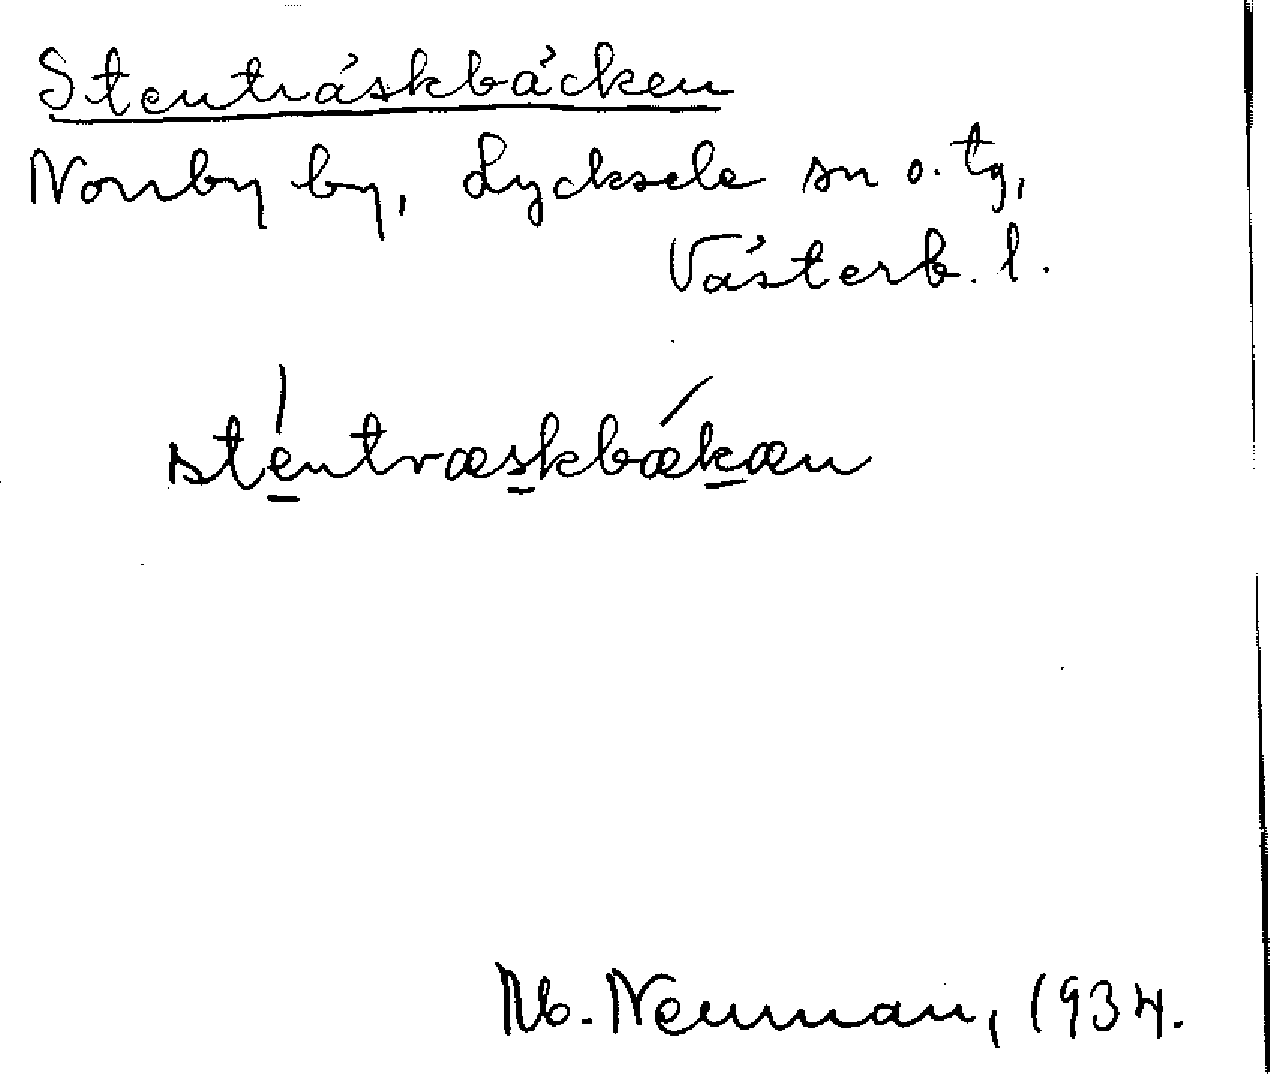 Stenträskbäcken
Norrby by, Lycksele sn o. tg,
Västerb. l.
sténtræskbækæn
Neuman, 1934.